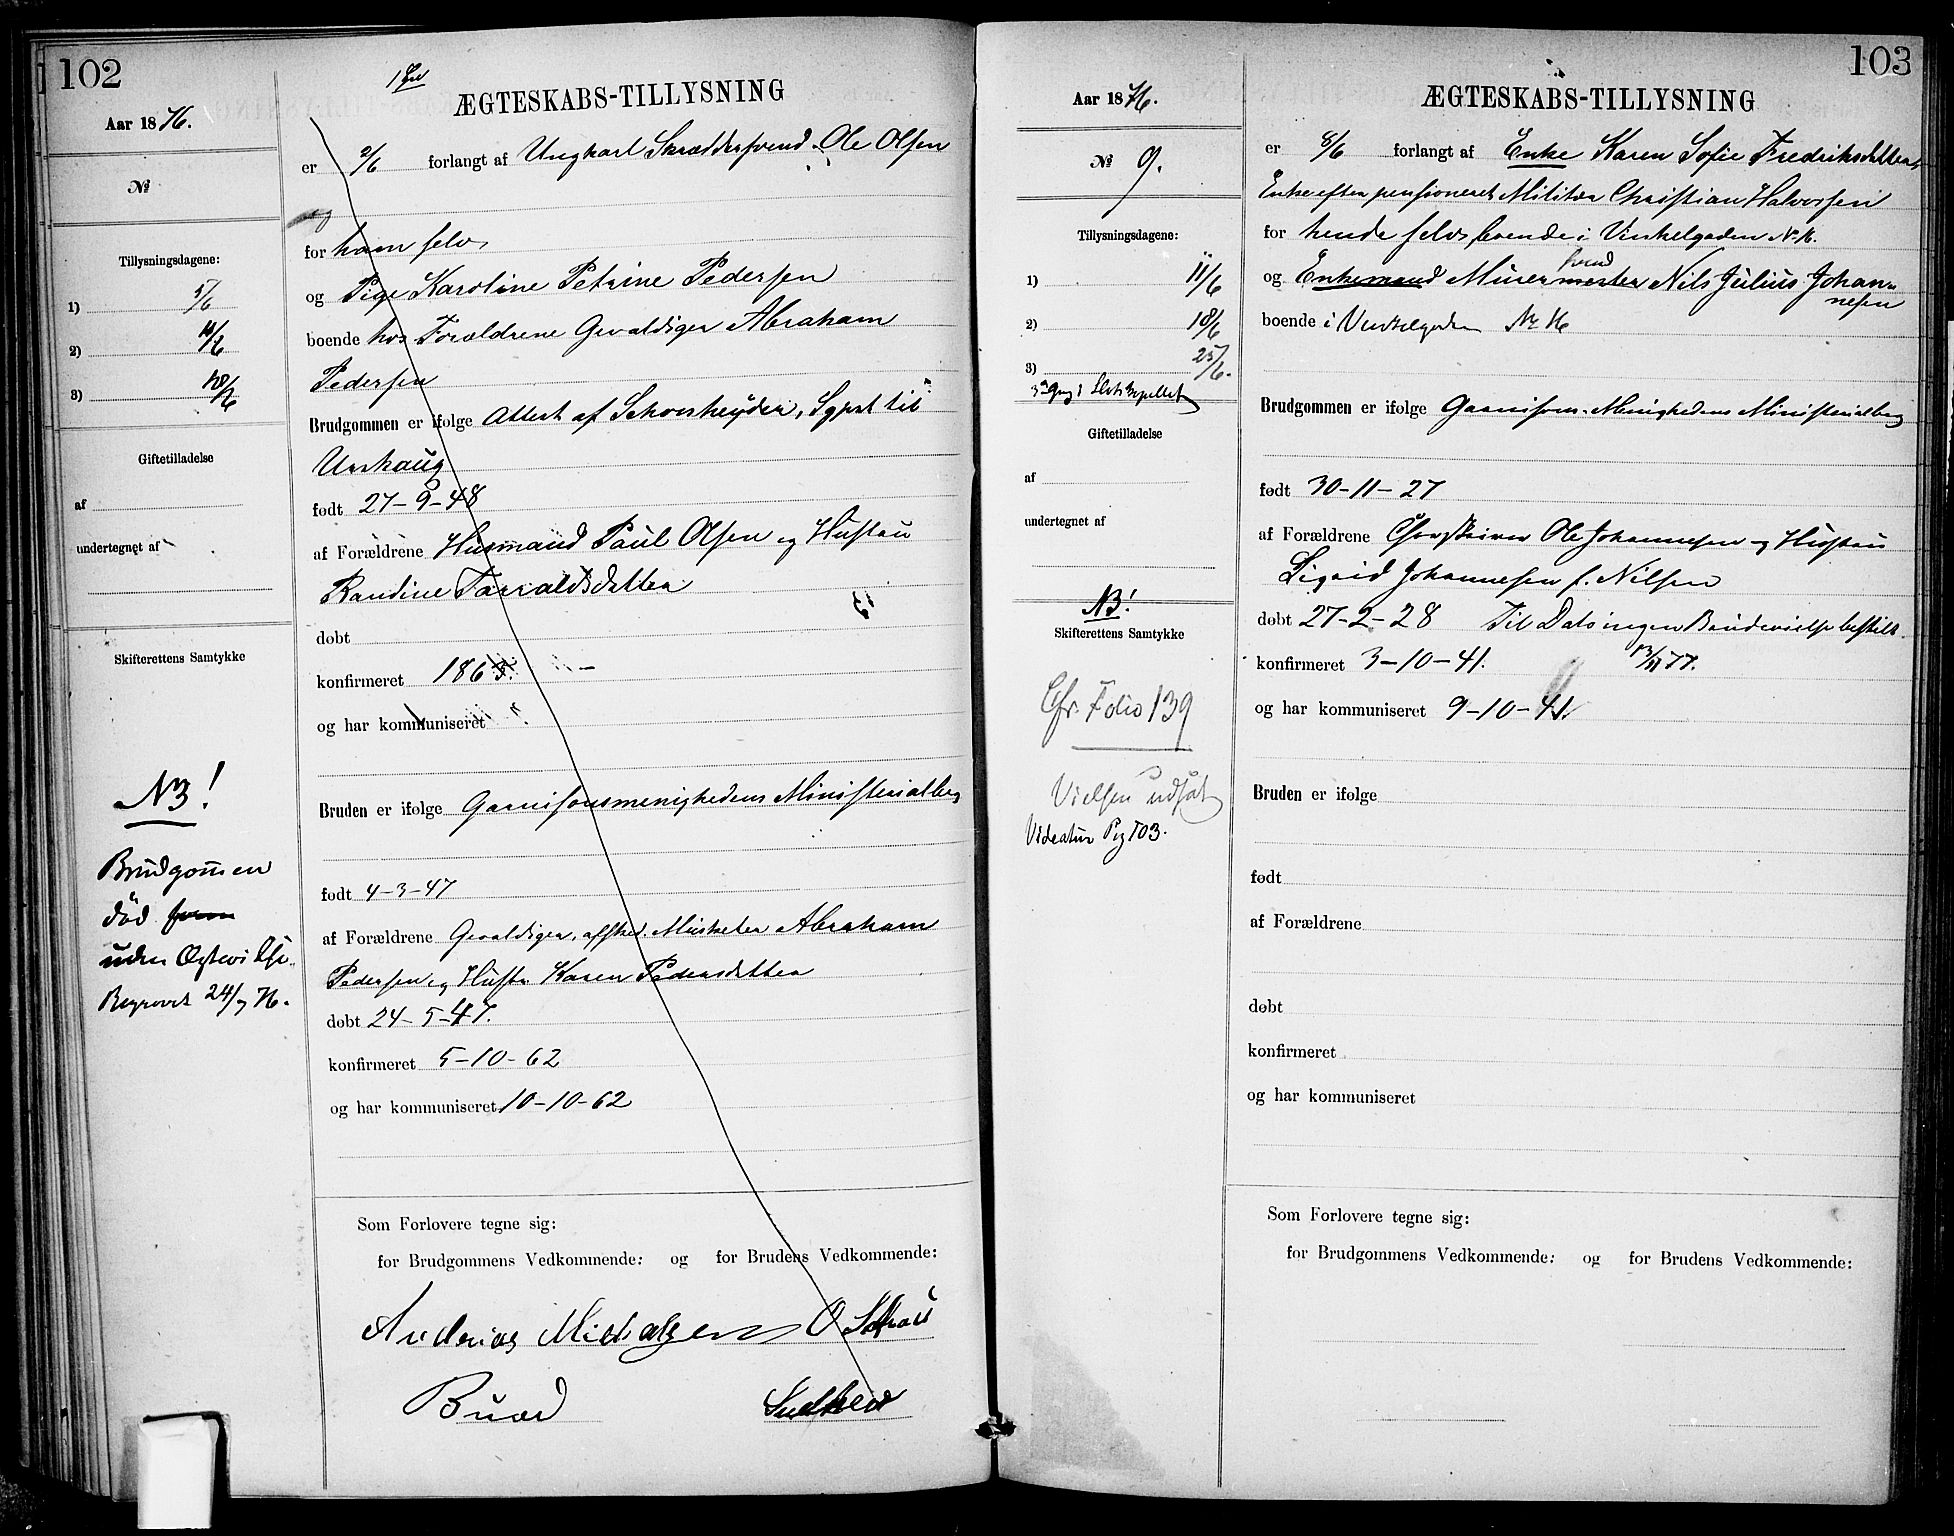 102
1 Gg
ÆGTESKABS-TILLYSNING
Aar 1876.
er 2/6 forlangt af Ungkarl Skræddersvend Ole Olsen
№
for ham selv
Tillysningsdagene:
og Pige Karoline Petrine Pedersen
1) 5/6
boende hos Forældrene Gevaldiger Abraham
2) 11/6
Pedersen
3) 18/6
Brudgommen er ifølge Attest af Sgprst til
Urskaug
Giftetilladelse
født 27-9-48
af
af Forældrene Husmand Paul Olsen og Hustru
undertegnet af
Randine Taraldsdatter
døbt
Skifterettens Samtykke
konfirmeret 1865.
og har kommuniseret
NB!
Bruden er ifølge Garnisonsmenighedens Ministerialbog
Brudgommen
født 4-3-47
død
af Forældrene Gevaldiger, afsked. Musketer Abraham
uden Ægtevielse.
Pedersen og Hustr Karen Pedersdatter
Begravet 24/7 76.
døbt 24-5-47.
konfirmeret 5-10-62
og har kommuniseret 10-10-62
Som Forlovere tegne sig:
for Brudgommens Vedkommende: og for Brudens Vedkommende:
Andreas Michalsen
103
ÆGTESKABS-TILLYSNING
Aar 1876.
er 8/6 forlangt af Enke Karen Sofie Fredriksdatter,
№ 9.
Enke efter pensioneret Militær Christian Halvorsen
for hende selv boende i Vinkelgaden N. 16.
Tillysningsdagene:
svend
og Enkemand Murermester Nils Julius Johan-
nesen
1) 11/6
boende i Vinkelgaden Nr 16
2) 18/6
3) 25/6.
3die Gng i Slotskapellet
Brudgommen er ifølge Garnisons-Menighedens Ministerialbog
Giftetilladelse
af
født 30-11-27
undertegnet af
af Forældrene Ole Johannesen og Hustru
Sigrid Johannesen f. Nilsen
NB!
døbt 27-2-28 Til Datsingen Brudevielse bestilt
Skifterettens Samtykke
konfirmeret 3-10-41. 13/11 77.
Cfr. Folio 139
og har kommuniseret 9-10-41.
Vielsen udsat
Bruden er ifølge
Videatur Pag 103.
født
af Forældrene
døbt
konfirmeret
og har kommuniseret
Som Forlovere tegne sig:
for Brudgommens Vedkommende: og for Brudens Vedkommende: